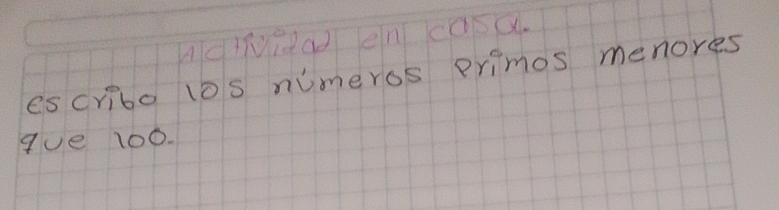 Actividad en casa.
escribo los números primos menores
que 100.